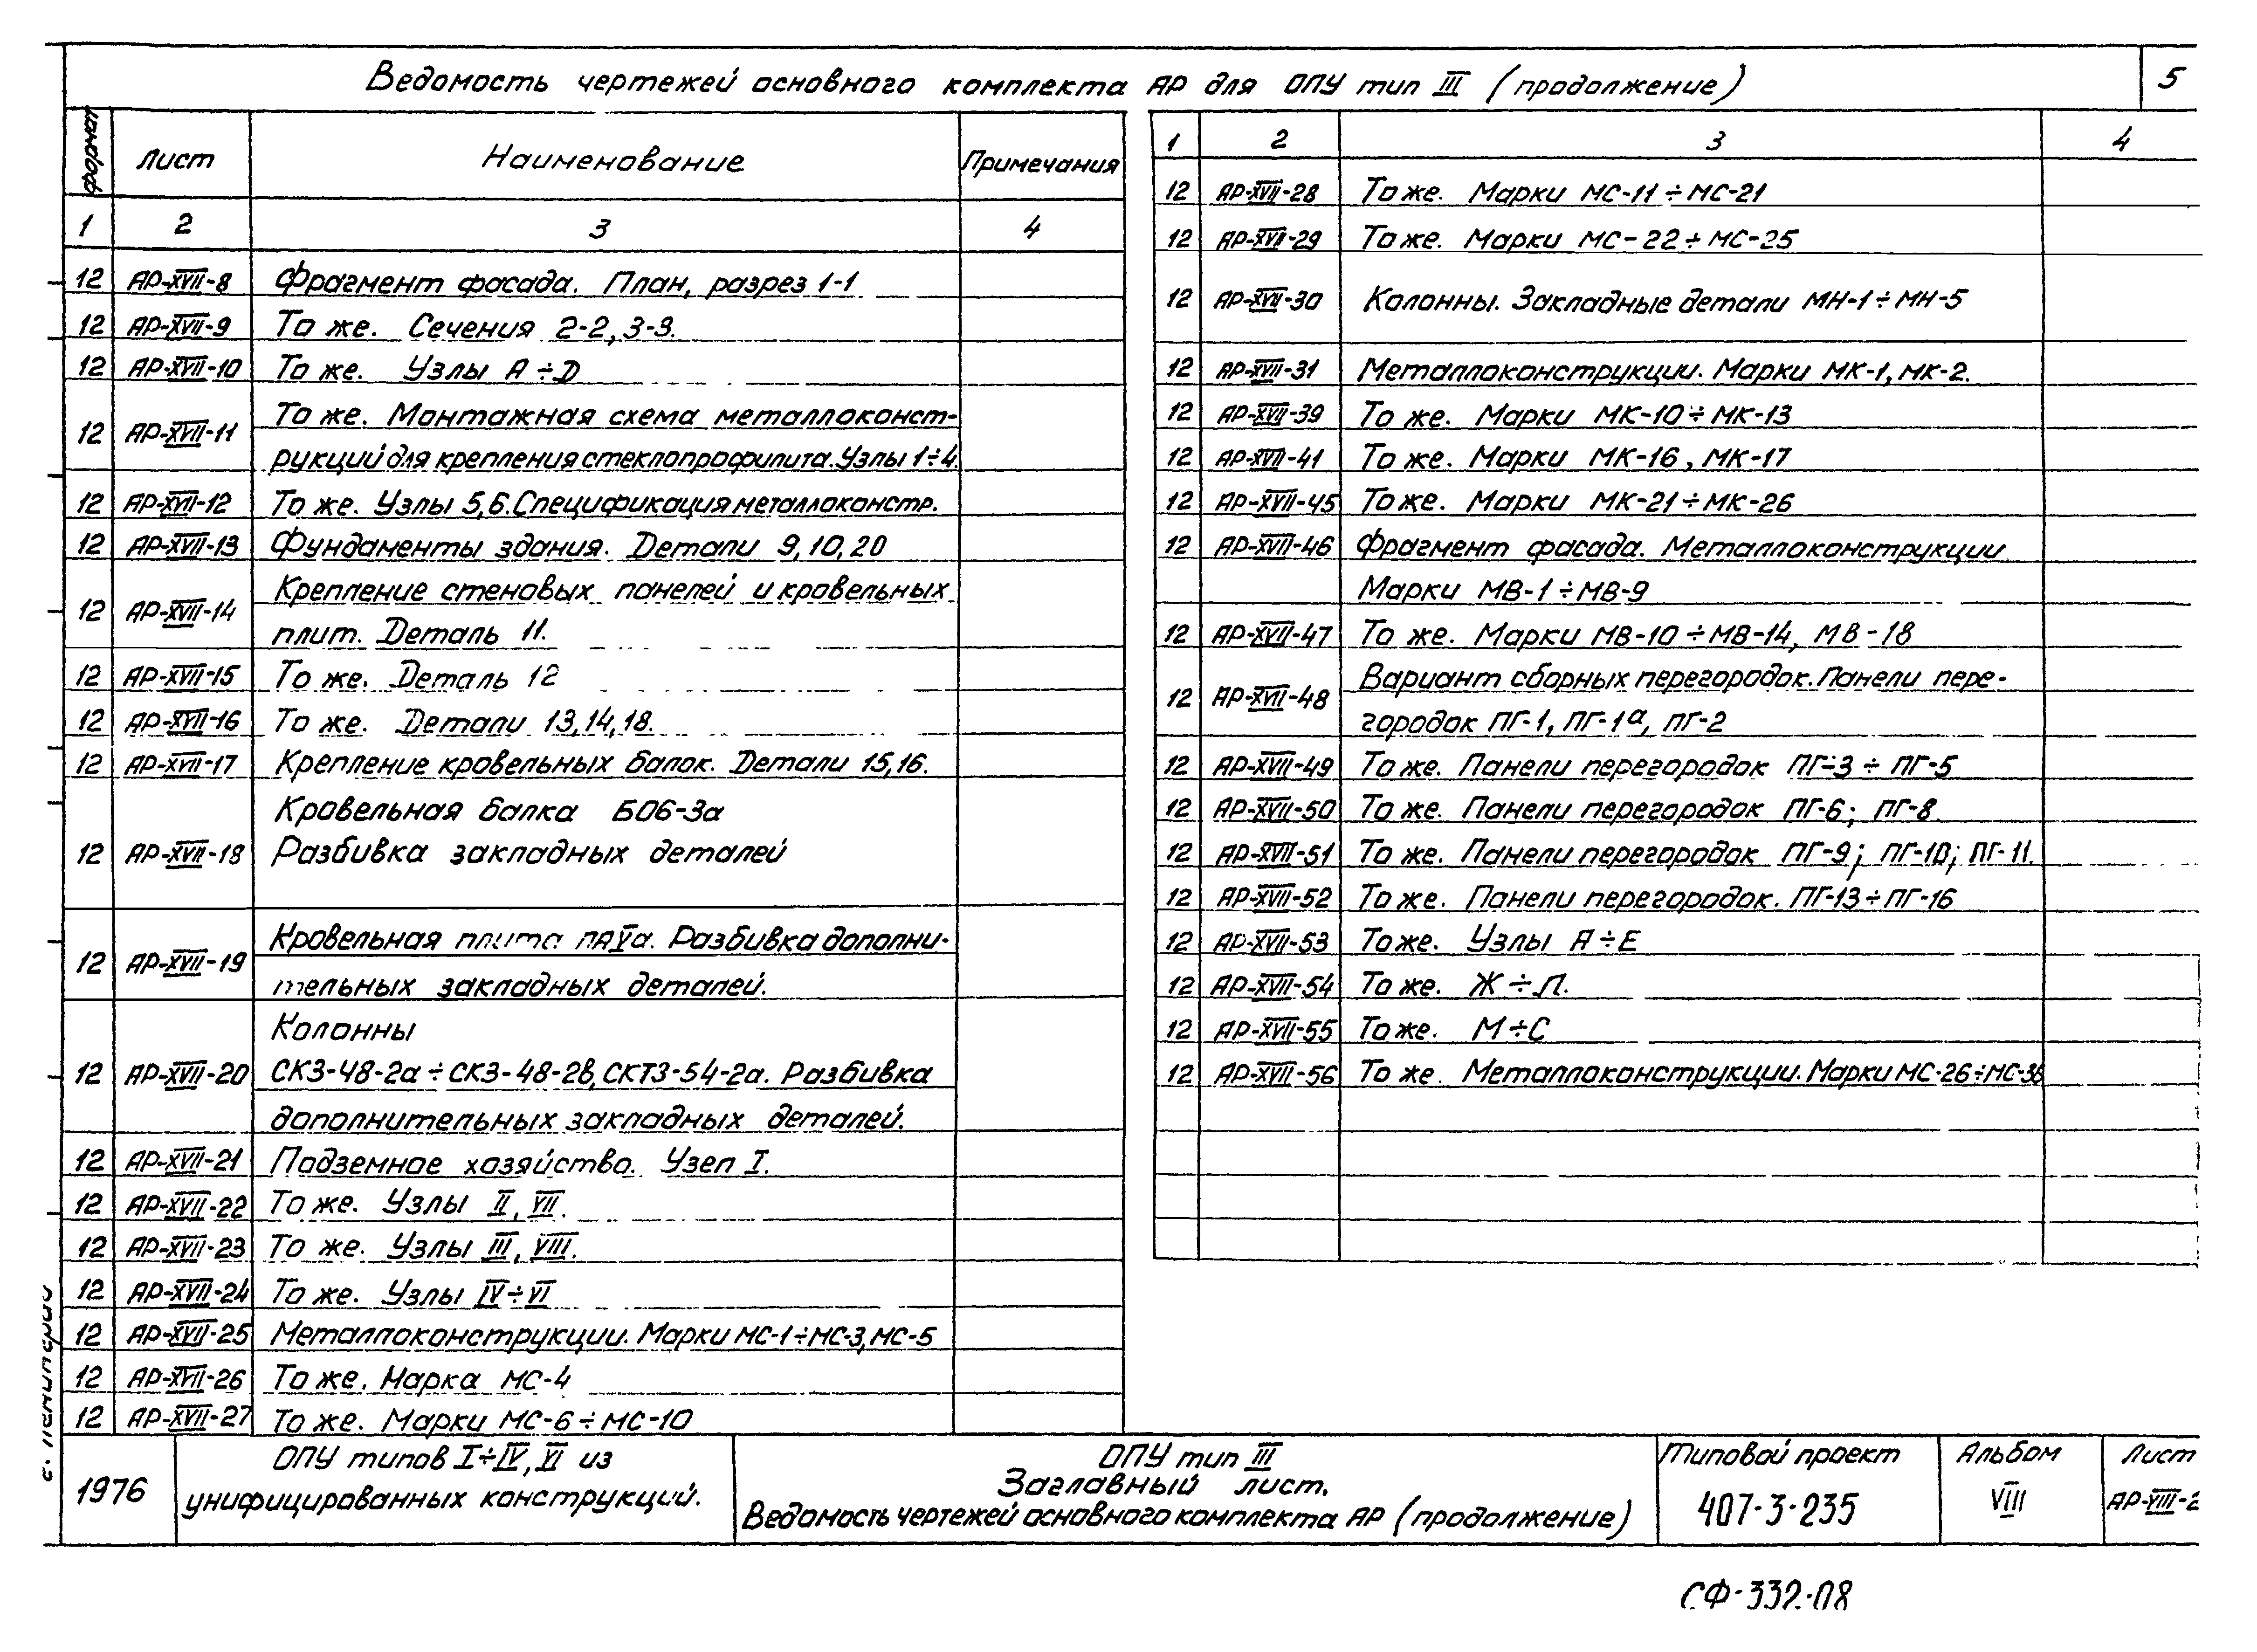 Ведомость чертежей основного комплекта АР для ОПУ тип III (продолжение) 5
формат Лист Наименование Примечания
1 2 3 4
12 АР-XVII-8 Фрагмент фасада. План, разрез 1-1
12 АР-XVII-9 То же. Сечения 2-2, 3-3.
12 АР-XVII-10 То же. Узлы А÷D
12 АР-XVII-11 То же. Монтажная схема металлоконст-
рукций для крепления стеклопрофилита. Узлы 1÷4.
12 АР-XVII-12 То же. Узлы 5,6. Спецификация металлоконстр.
12 АР-XVII-13 Фундаменты здания. Детали 9,10,20
12 АР-XVII-14 Крепление стеновых панелей и кровельных
плит. Деталь 11.
12 АР-XVII-15 То же. Деталь 12
12 АР-XVII-16 То же. Детали 13,14,18.
12 АР-XVII-17 Крепление кровельных балок. Детали 15,16.
12 АР-XVII-18 Кровельная балка Б06-3а
Разбивка закладных деталей
12 АР-XVII-19 Кровельная плита ПАVа. Разбивка дополни-
тельных закладных деталей.
12 АР-XVII-20 Колонны
СК3-48-2а÷СК3-48-2в, СКТ3-54-2а. Разбивка
дополнительных закладных деталей.
12 АР-XVII-21 Подземное хозяйство. Узел I.
12 АР-XVII-22 То же. Узлы II, VII.
12 АР-XVII-23 То же. Узлы III, VIII.
12 АР-XVII-24 То же. Узлы IV÷VI
12 АР-XVII-25 Металлоконструкции. Марки МС-1÷МС-3, МС-5
12 АР-XVII-26 То же. Марка МС-4
12 АР-XVII-27 То же. Марки МС-6÷МС-10
1 2 3 4
12 АР-XVII-28 То же. Марки МС-11÷МС-21
12 АР-XVII-29 То же. Марки МС-22÷МС-25
12 АР-XVII-30 Колонны. Закладные детали МН-1÷МН-5
12 АР-XVII-31 Металлоконструкции. Марки МК-1, МК-2.
12 АР-XVII-39 То же. Марки МК-10÷МК-13
12 АР-XVII-41 То же. Марки МК-16, МК-17
12 АР-XVII-45 То же. Марки МК-21÷МК-26
12 АР-XVII-46 Фрагмент фасада. Металлоконструкции
Марки МВ-1÷МВ-9
12 АР-XVII-47 То же. Марки МВ-10÷МВ-14, МВ-18
12 АР-XVII-48 Вариант сборных перегородок. Панели пере-
городок ПГ-1, ПГ-1а, ПГ-2
12 АР-XVII-49 То же. Панели перегородок ПГ-3÷ПГ-5
12 АР-XVII-50 То же. Панели перегородок ПГ-6; ПГ-8
12 АР-XVII-51 То же. Панели перегородок ПГ-9; ПГ-10; ПГ-11.
12 АР-XVII-52 То же. Панели перегородок. ПГ-13÷ПГ-16
12 АР-XVII-53 То же. Узлы А÷Е
12 АР-XVII-54 То же. Ж÷Л.
12 АР-XVII-55 То же. М÷С
12 АР-XVII-56 То же. Металлоконструкции. Марки МС-26÷МС-38
1976
ОПУ типов I÷IV, VI из
унифицированных конструкций.
ОПУ тип III
Заглавный лист.
Ведомость чертежей основного комплекта АР (продолжение)
Типовой проект
407-3-235
Альбом
VIII
Лист
АР-VIII-2
СФ-332-08